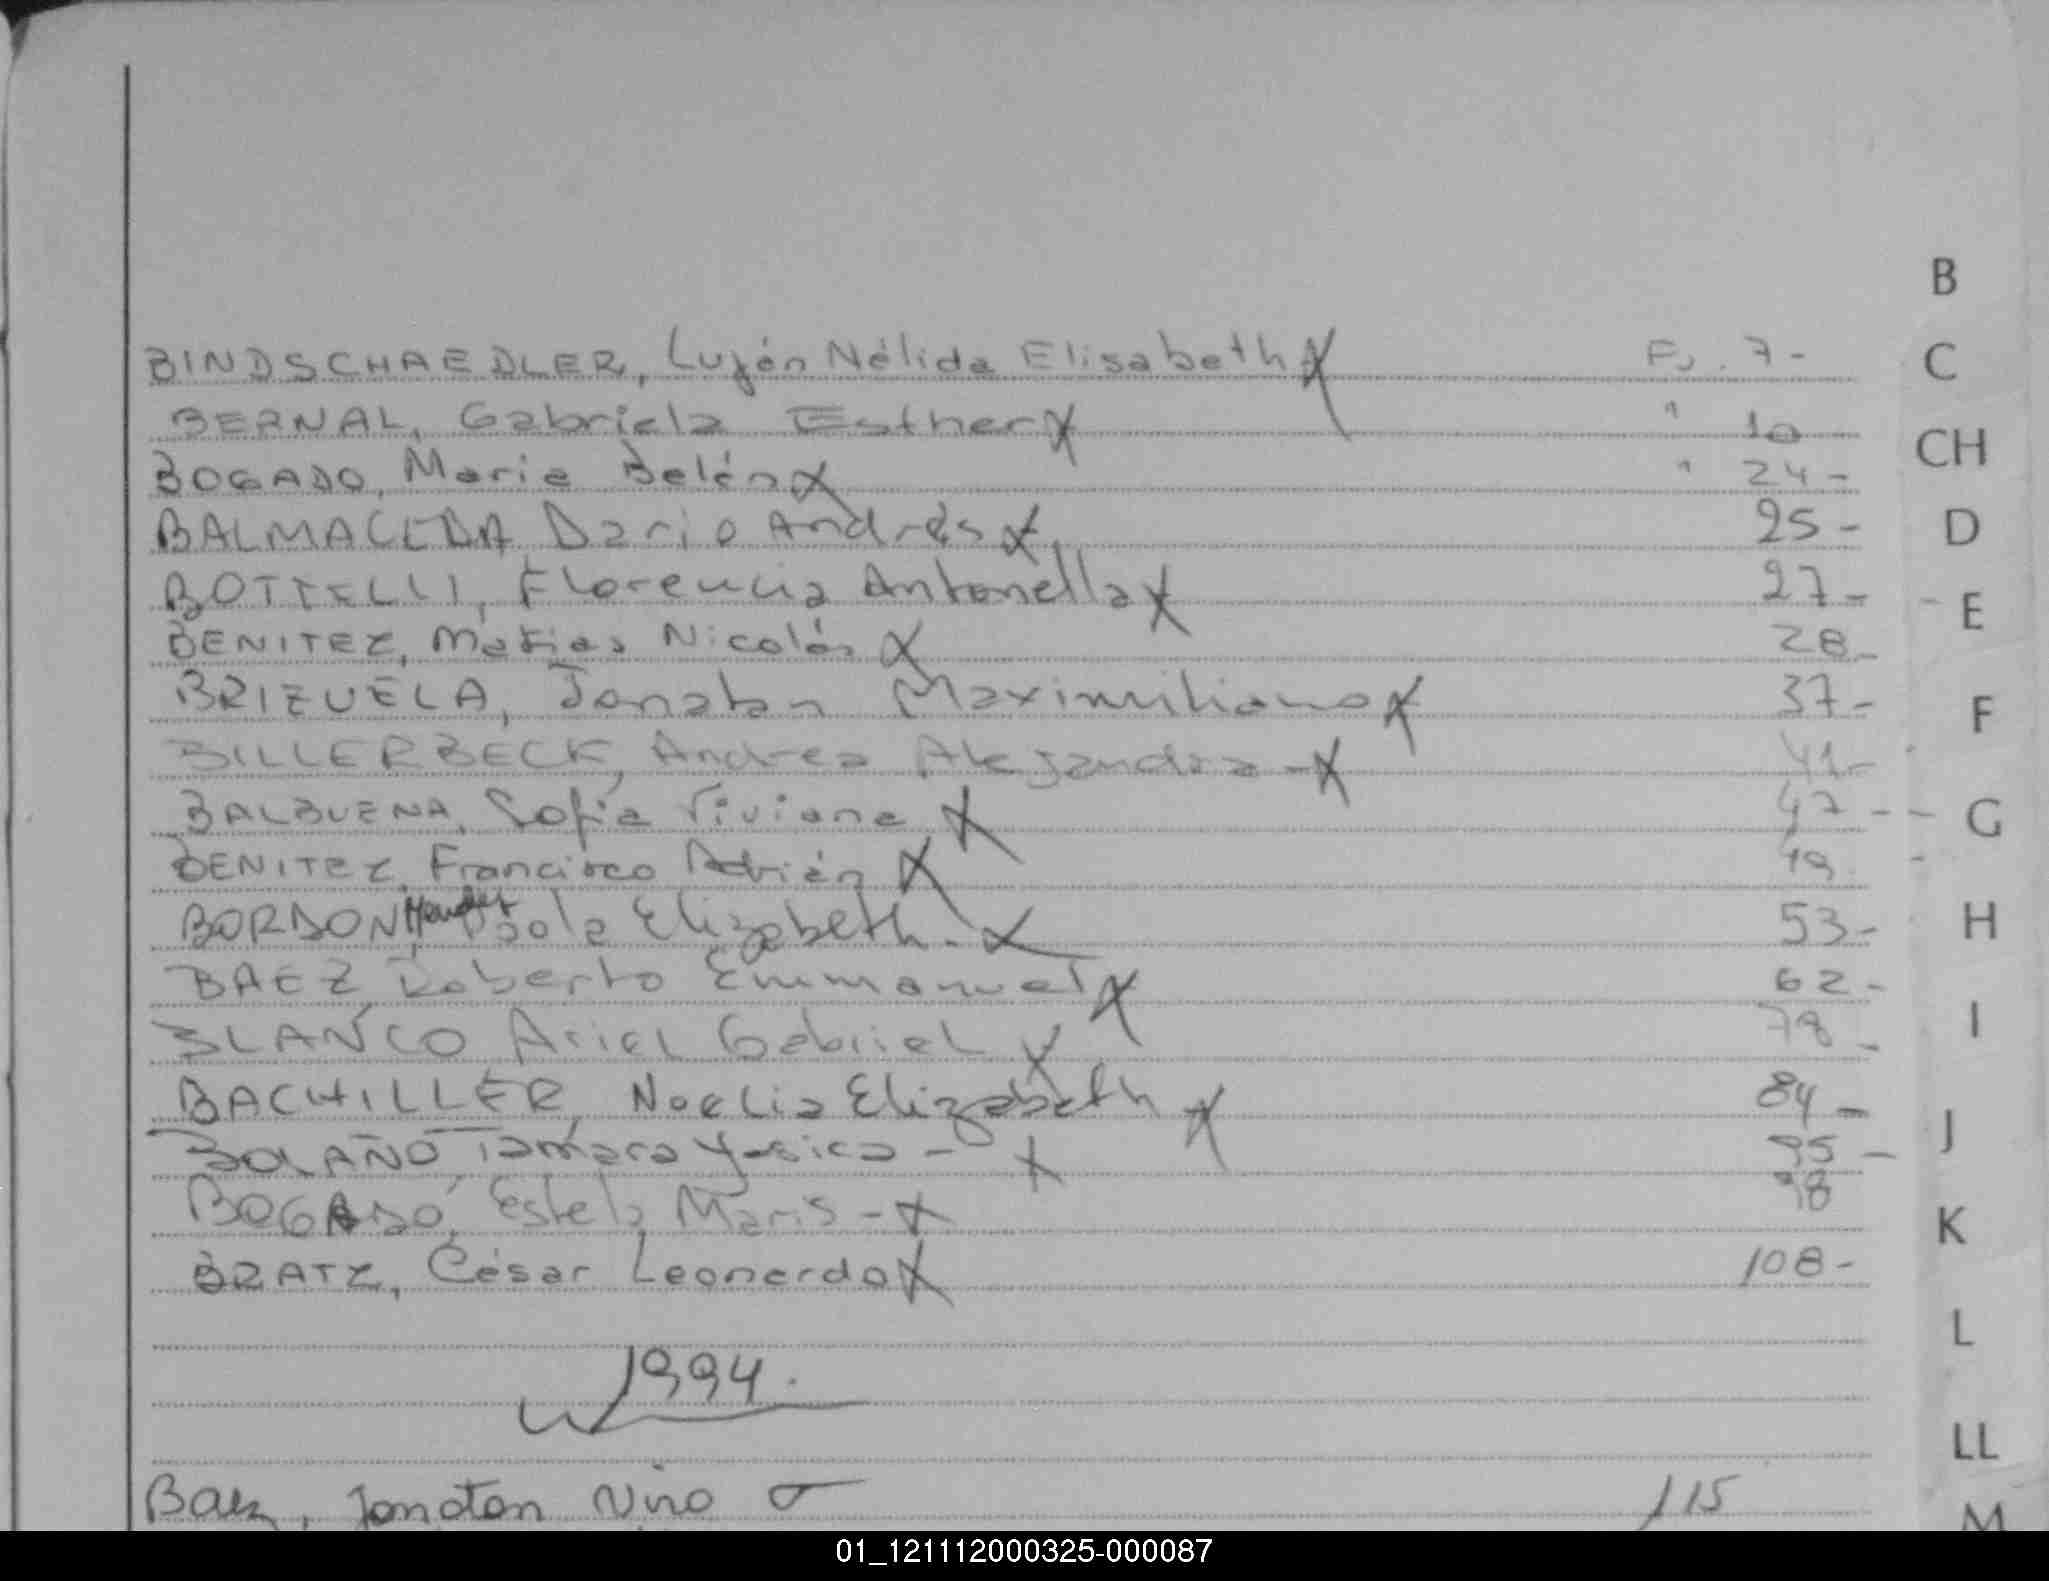 B
BINDSCHAEDLER, Luján Nélida Elisabeth X Fj. 7-
C
BERNAL, Gabriela Esther X " 10
CH
BOGADO, Maria Belén X " 24-
BALMACEDA Dario Andrés X 25-
D
BOTTELLI, Florencia Antonella X 27-
E
BENITEZ, Matias Nicolás X 28-
BRIZUELA, Jonatan Maximiliano X 37-
F
BILLERBECK, Andrea Alejandra - X 41-
BALBUENA, Sofía Viviana X 47-
G
BENITEZ, Francisco Adrián X 49
BORDON, Paola Elizabeth. X 53-
H
BAEZ, Roberto Emmanuel X 62-
BLANCO Ariel Gabriel X 78-
I
BACHILLER, Noelia Elizabeth X 84-
J
BOLAÑO, Tamara Yesica - X 95-
BOGADO, Estela Maris - X 98
K
BRATZ, César Leonardo X 108-
L
1994.
LL
Baez, Jonatan Nino 115
M
01_121112000325-000087